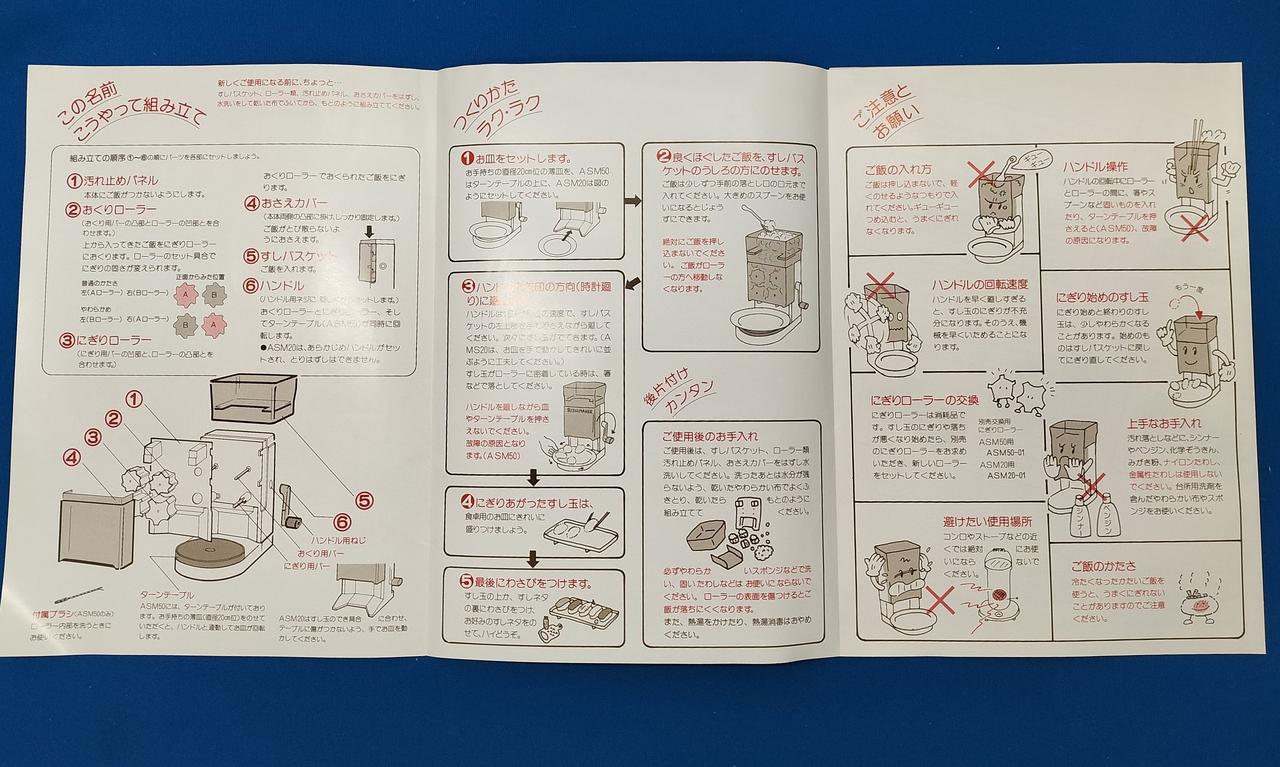 この名前
こうやって組み立て
新しくご使用になる前に、ちょっと…
すしバスケット、ローラー類、汚れ止めパネル、おさえカバーをはずし、
水洗いをして乾いた布でふいてから、もとのように組み立ててください。
組み立ての順序①〜⑥の順にパーツを各部にセットしましょう。
①汚れ止めパネル
本体にご飯がつかないようにします。
②おくりローラー
(おくり用バーの凸部とローラーの凹部とを合
わせます。)
上から入ってきたご飯をにぎりローラー
におくります。ローラーのセット具合で
にぎりの固さが変えられます。
正面からみた位置
普通のかたさ
左(Aローラー) 右(Bローラー)
A B
やわらかめ
左(Bローラー) 右(Aローラー)
B A
③にぎりローラー
(にぎり用バーの凹部と、ローラーの凸部とを
合わせます。)
おくりローラーでおくられたご飯をにぎ
ります。
④おさえカバー
(本体両側の凸部に掛け、しっかり固定します。)
ご飯がとび散らないよ
うにおさえます。
⑤すしバスケット
ご飯を入れます。
⑥ハンドル
おくりローラーとにぎりローラー、そし
てターンテーブル(ASM50)が同時に回
転します。
●ASM20は、あらかじめハンドルがセッ
トされ、とりはずしはできません。
①
②
③
④
⑤
⑥
ハンドル用ねじ
おくり用バー
にぎり用バー
付属ブラシ(ASM50のみ)
ローラー内部を洗うときに
お使いください。
ターンテーブル
ASM50には、ターンテーブルが付いており
ます。お手持ちの薄皿(直径20cm位)をのせて
いただくと、ハンドルと連動してお皿が回転
します。
ASM20はすしのでき具合に合わせ、
テーブルに傷がつかないよう、手でお皿を動
かしてください。
つくりかた
ラク・ラク
①お皿をセットします。
お手持ちの直径20cm位の薄皿を、ASM50
はターンテーブルの上に、ASM20は図の
ようにセットしてください。
②良くほぐしたご飯を、すしバス
ケットのうしろの方にのせます。
ご飯は少しずつ手前の落とし口の口元まで
入れてください。大きめのスプーンをお使
いになるとじょう
ずにできます。
絶対にご飯を押し
込まないでくださ
い。ご飯がローラ
ーの方へ移動しな
くなります。
③ハンドルを矢印の方向(時計廻
り)に廻します。
ハンドルは1秒に1回位の速度で、すしバス
ケットの左上部を手でおさえながら廻して
ください。次々にすし玉がでてきます。(A
MS20は、お皿を手で動かしてきれいに並
ぶように工夫してください。)
すし玉がローラーに密着している時は、箸
などで落としてください。
ハンドルを廻しながら皿
やターンテーブルを押さ
えないでください。
故障の原因となり
ます。(ASM50)
④にぎりあがったすし玉は、
食卓用のお皿にきれいに
盛りつけましょう。
⑤最後にわさびをつけます。
すし玉の上か、すしネタ
の裏にわさびをつけ、
お好みのすしネタをの
せて、ハイどうぞ。
後片付け
カンタン
ご使用後のお手入れ
ご使用後は、すしバスケット、ローラー類
汚れ止めパネル、おさえカバーをはずし水
洗いしてください。洗ったあとは水分が残
らないよう、乾いたやわらかい布でよくふ
きとり、乾いたら もとのように
組み立てて ください。
必ずやわらか いスポンジなどで洗
い、固いたわしなどは お使いにならないで
ください。ローラーの表面を傷つけるとご
飯が落ちにくくなります。
また、熱湯をかけたり、熱湯消毒はおやめ
ください。
ご注意と
お願い
ご飯の入れ方
ご飯は押し込まないで、軽
くのせるようなつもりで入
れてください。ギューギュー
つめ込むと、うまくにぎれ
なくなります。
ギュー
ギュー
ハンドル操作
ハンドルの回転中にローラー
とローラーの間に、箸やス
プーンなど固いものを入れ
たり、ターンテーブルを押
さえると(ASM50)、故障
の原因になります。
ハンドルの回転速度
ハンドルを早く廻しすぎる
と、すし玉のにぎりが不充
分になります。そのうえ、機
械を早くいためることにな
ります。
にぎり始めのすし玉
にぎり始めと終わりのすし
玉は、少しやわらかくなる
ことがあります。始めのも
のはすしバスケットに戻し
てにぎり直してください。
もう一度
にぎりローラーの交換
にぎりローラーは消耗品で
す。すし玉のにぎりや落ち
が悪くなり始めたら、別売
のにぎりローラーをお求め
いただき、新しいローラー
をセットしてください。
別売交換用
にぎりローラー
ASM50用
ASM50-01
ASM20用
ASM20-01
上手なお手入れ
汚れ落としなどに、シンナー
やベンジン、化学ぞうきん、
みがき粉、ナイロンたわし、
金属性たわしは使用しない
でください。台所用洗剤を
含んだやわらかい布やスポ
ンジをお使いください。
シンナー
ベンジン
避けたい使用場所
コンロやストーブなどの近
くでは絶対 にお使
いになら ないで
ください。
ご飯のかたさ
冷たくなったかたいご飯を
使うと、うまくにぎれない
ことがありますのでご注意
ください。